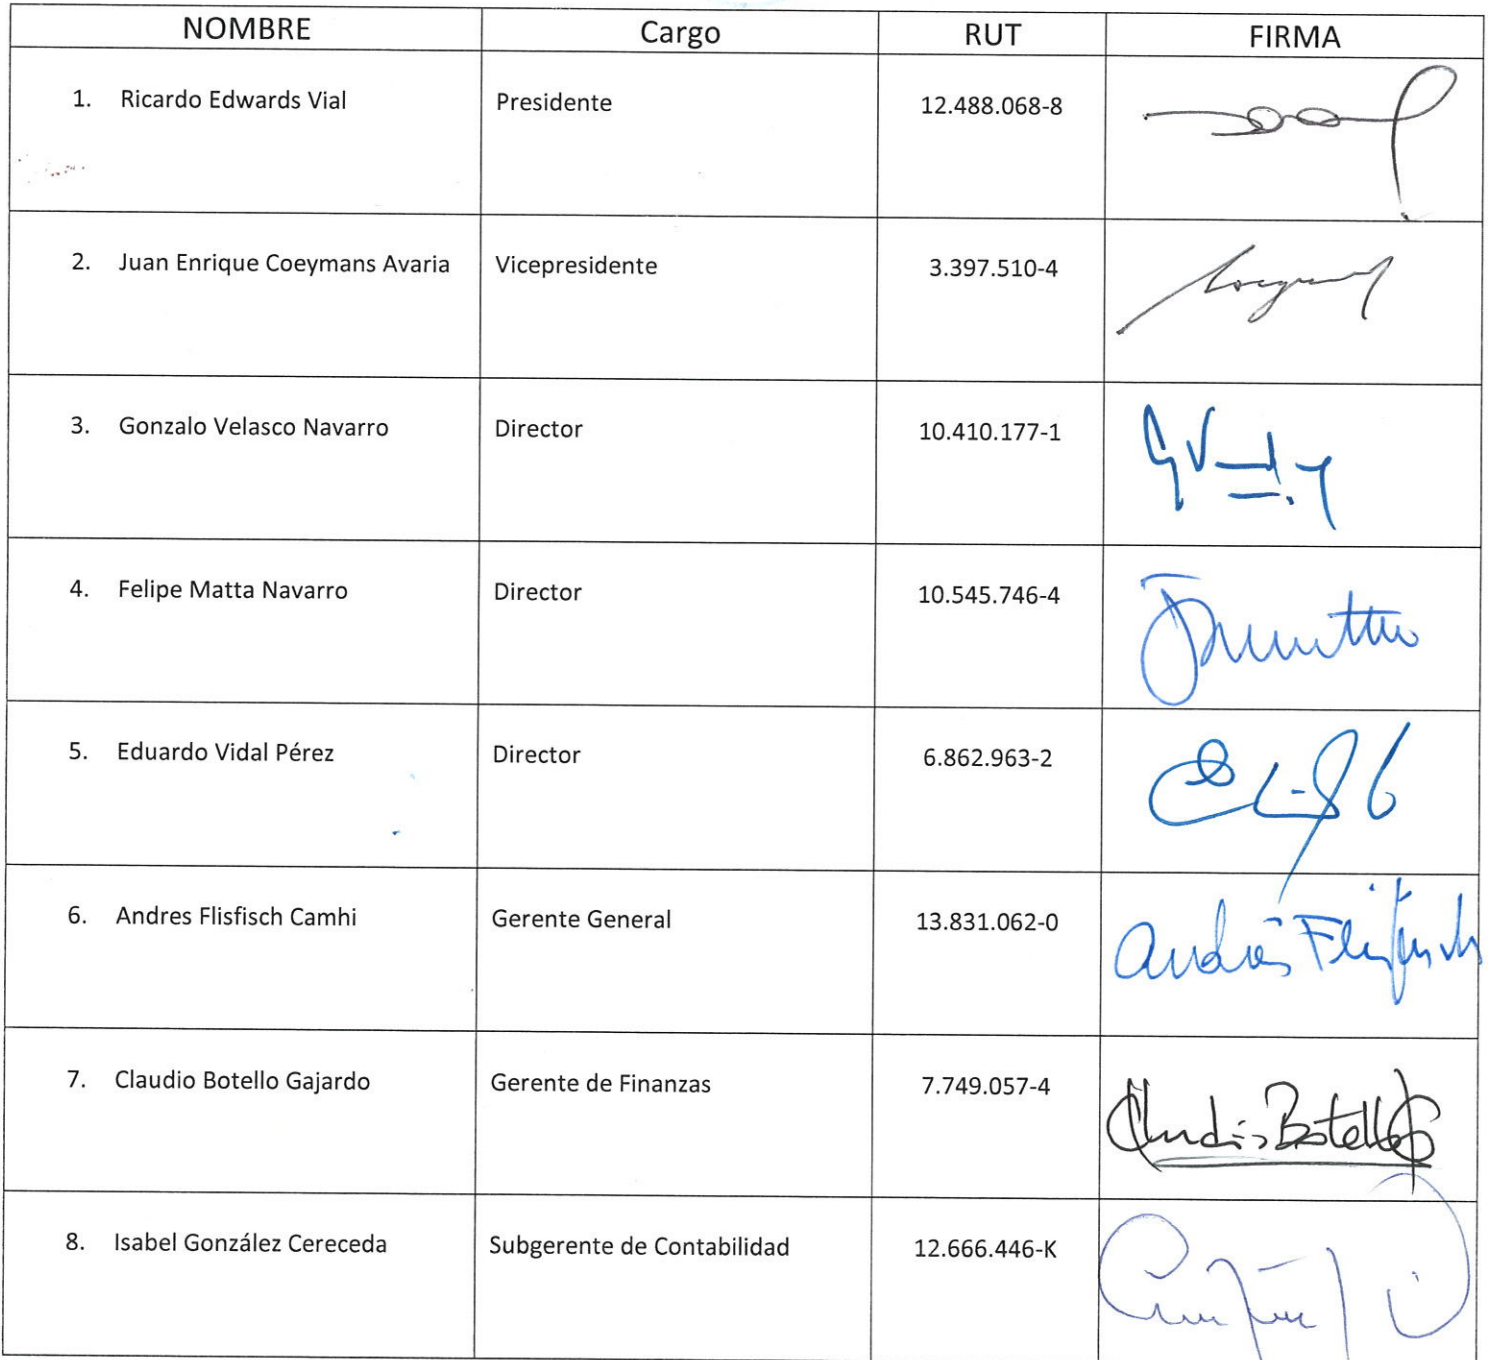 NOMBRE Cargo RUT FIRMA
1. Ricardo Edwards Vial Presidente 12.488.068-8
2. Juan Enrique Coeymans Avaria Vicepresidente 3.397.510-4
3. Gonzalo Velasco Navarro Director 10.410.177-1
4. Felipe Matta Navarro Director 10.545.746-4
5. Eduardo Vidal Pérez Director 6.862.963-2
6. Andres Flisfisch Camhi Gerente General 13.831.062-0
7. Claudio Botello Gajardo Gerente de Finanzas 7.749.057-4
8. Isabel González Cereceda Subgerente de Contabilidad 12.666.446-K